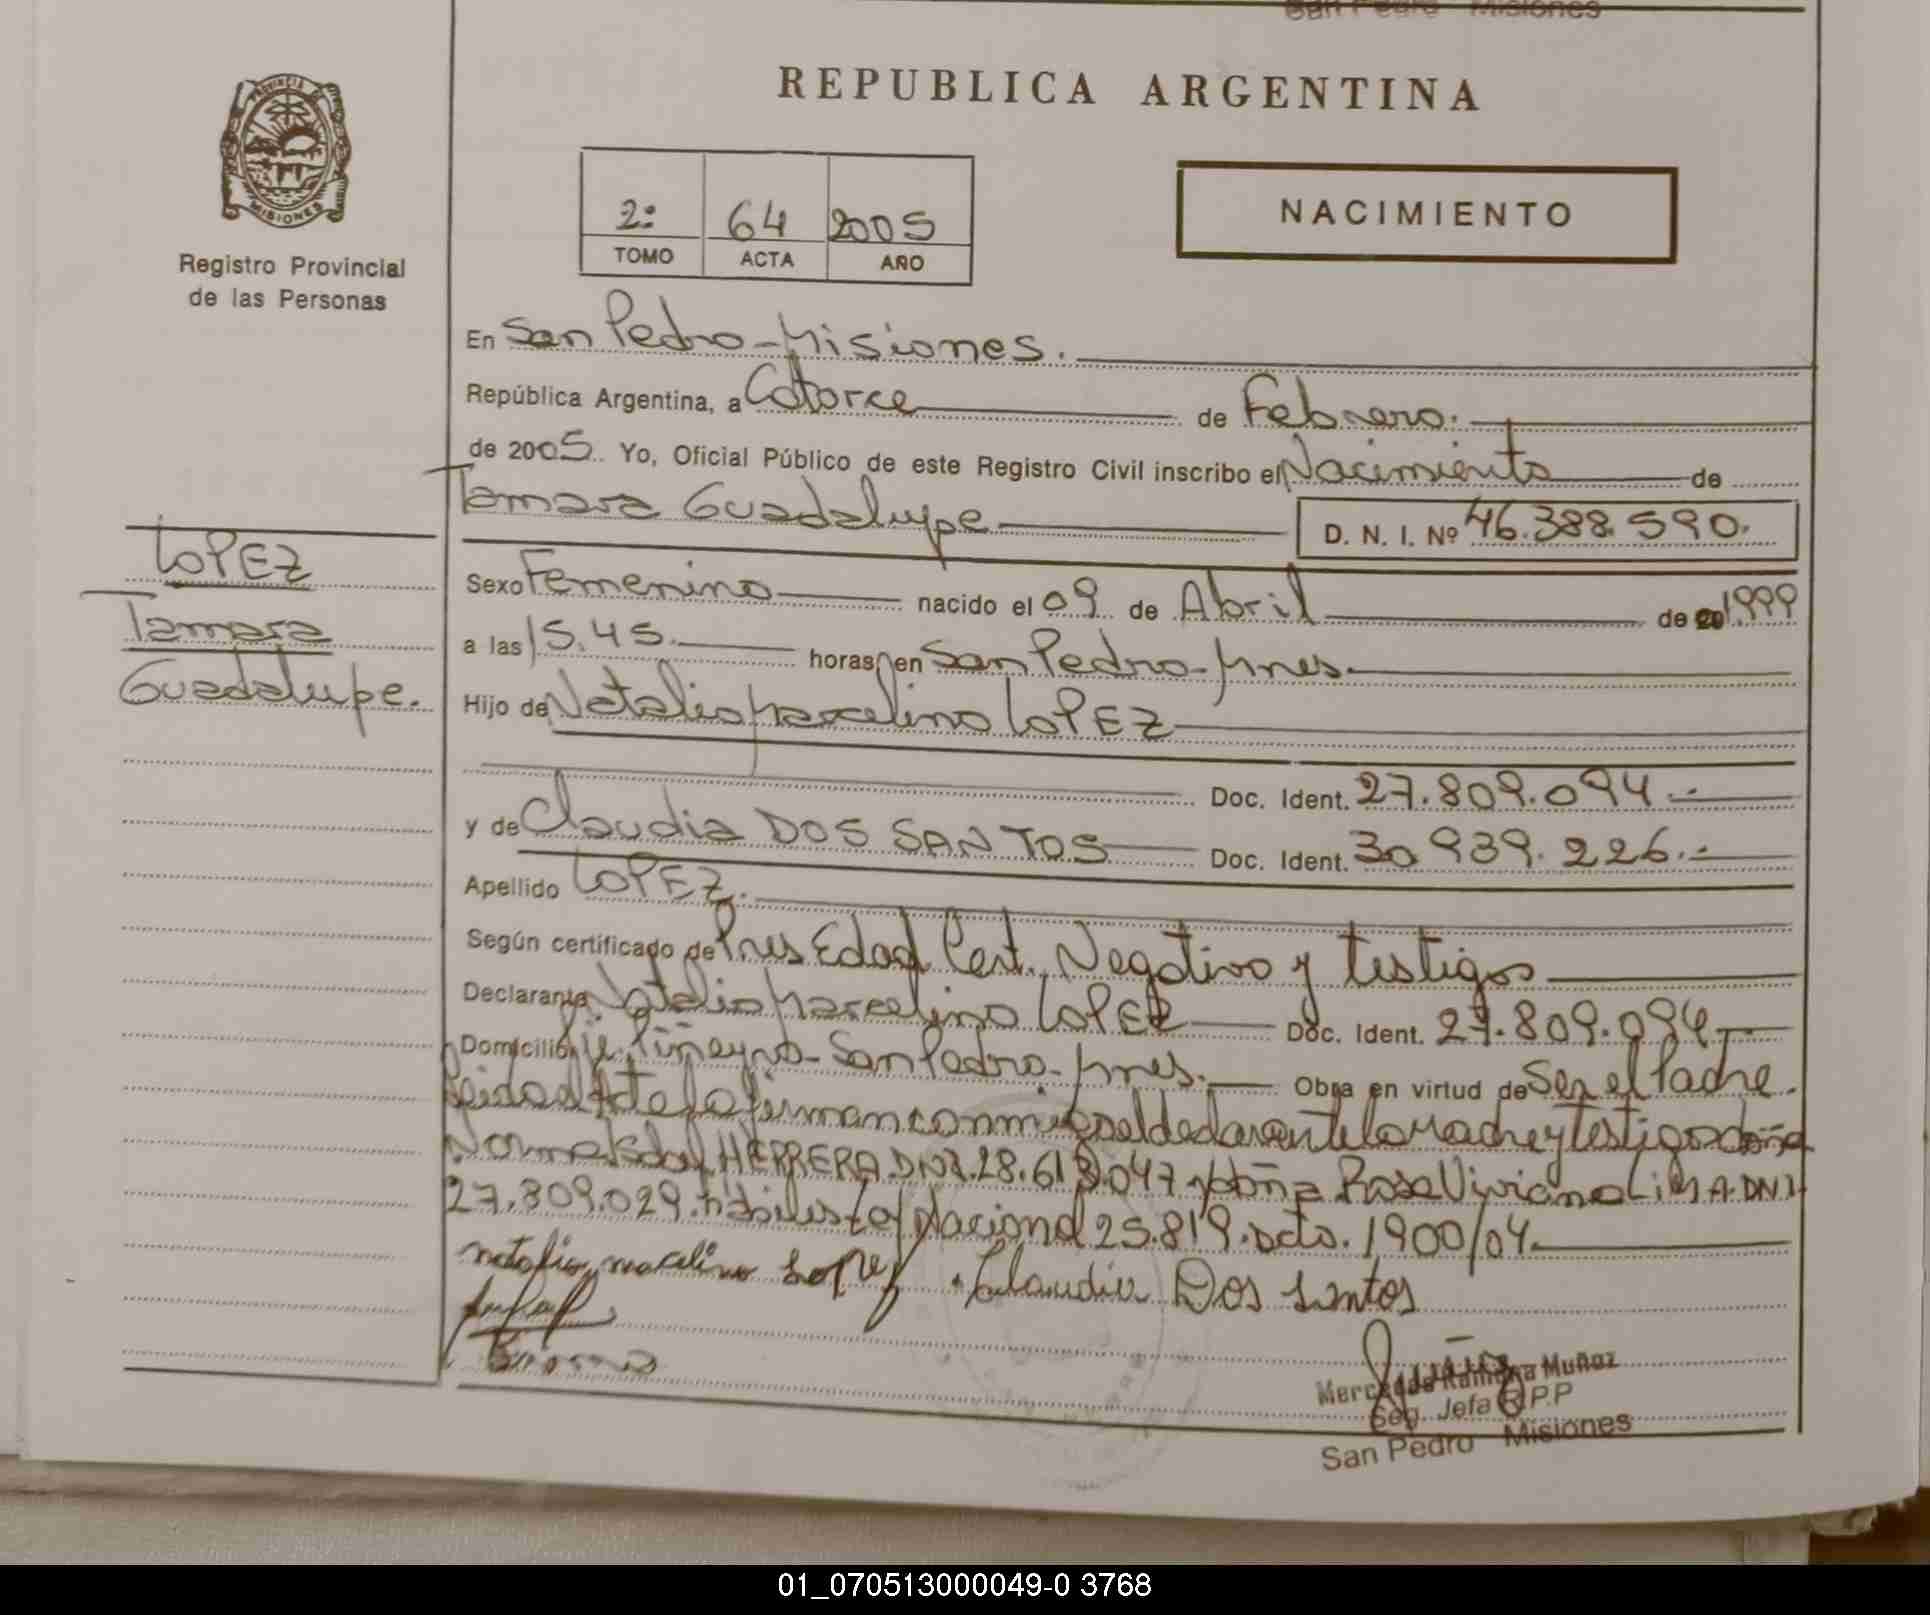 San Pedro Misiones
REPUBLICA ARGENTINA
PROVINCIA DE
MISIONES
Registro Provincial
de las Personas
2º 64 2005
TOMO ACTA AÑO
NACIMIENTO
En San Pedro - Misiones.
República Argentina, a Catorce de Febrero.
de 2005. Yo, Oficial Público de este Registro Civil inscribo el Nacimiento de
Tamara Guadalupe D. N. I. Nº 46.388.590.
LOPEZ
Tamara
Guadalupe.
Sexo Femenino nacido el 09 de Abril de 1999
a las 15.45. horas, en San Pedro - Mnes.
Hijo de Natalio Marcelino LOPEZ
Doc. Ident. 27.809.094.-
y de Claudia DOS SANTOS Doc. Ident. 30.939.226.-
Apellido LOPEZ.
Según certificado de Pres Edad Cert. Negativo y testigos
Declarante Natalio Marcelino LOPEZ Doc. Ident. 27.809.094
Domicilio Piñeyro - San Pedro - Mnes. Obra en virtud de Ser el Padre.
Leida el Acta la firman conmigo el declarante la Madre y testigos doña
Norma HERRERA DNI. 28.613.047 y doña Rosa Viviana LIMA. DNI
27.809.029. hábiles Ley Nacional 25.819. Dcto. 1900/04.
natalio marcelino Lopez Claudia Dos Santos
Mercedes Ramona Muñoz
Seg. Jefa R.P.P
San Pedro Misiones
01_070513000049-0 3768